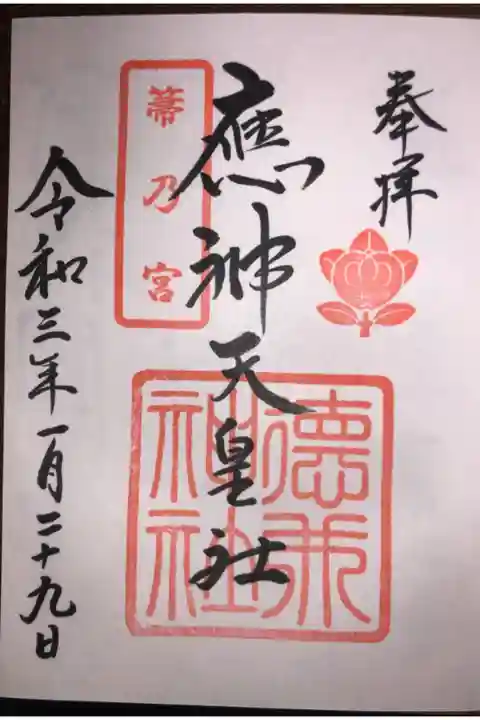 奉拝
應神天皇社
箒乃宮
神社
令和三年一月二十九日